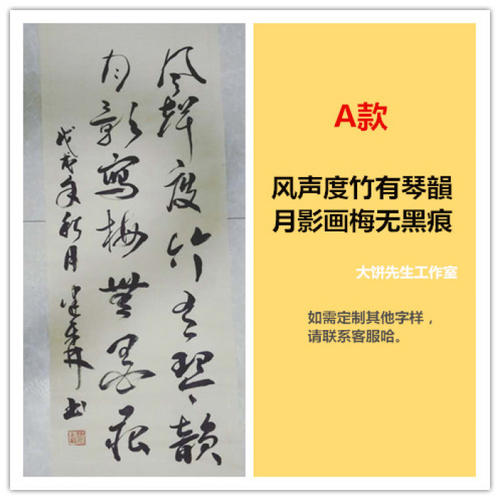 風聲度竹有琴韻
月影寫梅無墨痕
戊戌年秋月
A款
风声度竹有琴韻
月影画梅无黑痕
大饼先生工作室
如需定制其他字样，
请联系客服哈。